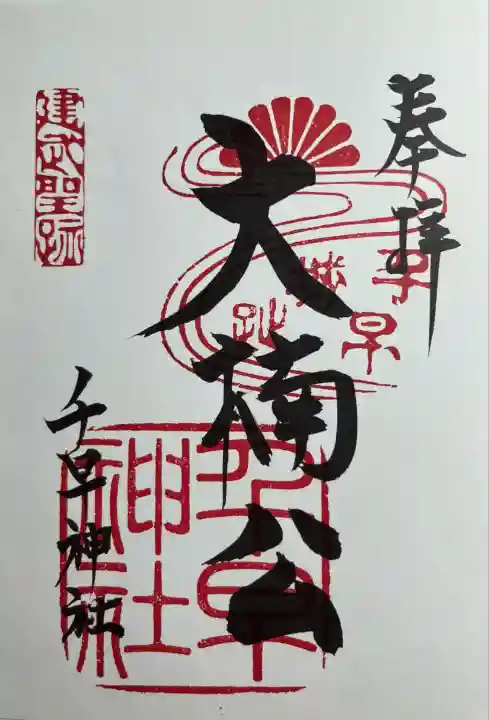 奉拝
千早
城址
大楠公
千早神社
建武聖跡